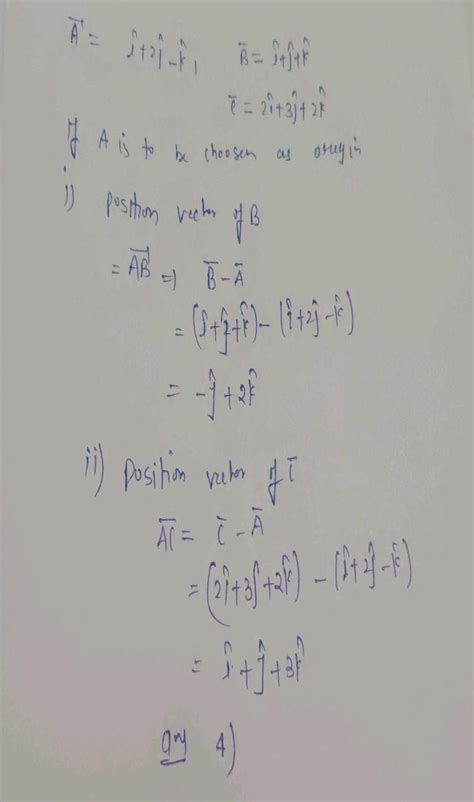 A⃗ = î+2ĵ-k̂, B̄ = î+ĵ+k̂
C̄ = 2î+3ĵ+2k̂
If A is to be choosen as origin
i) position vector of B
= A⃗B⃗ ⇒ B̄-Ā
= (î+ĵ+k̂)-(î+2ĵ-k̂)
= -ĵ+2k̂
ii) Position vector of C̄
A̅C̅ = C̄-Ā
= (2î+3ĵ+2k̂) - (î+2ĵ-k̂)
= î+ĵ+3k̂
ans 4)